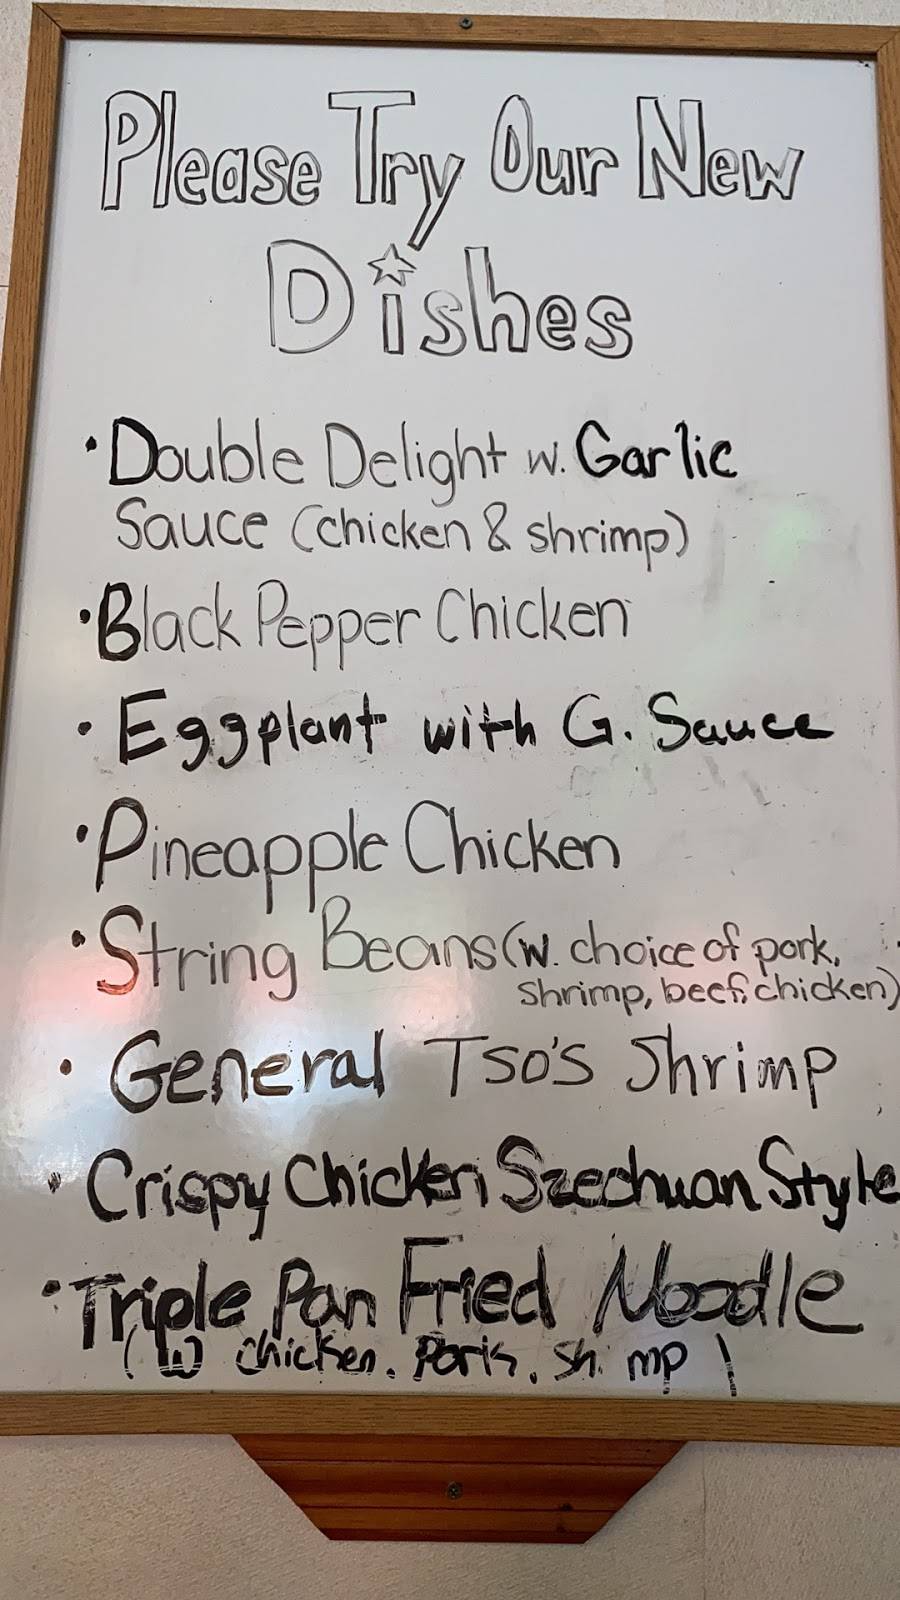 Please Try Our New
Dishes
• Double Delight w. Garlic
Sauce (chicken & shrimp)
• Black Pepper Chicken
• Eggplant with G. Sauce
• Pineapple Chicken
• String Beans (w. choice of pork,
shrimp, beef, chicken)
• General Tso's Shrimp
• Crispy Chicken Szechuan Style
• Triple Pan Fried Noodle
(W chicken. Pork. sh mp)